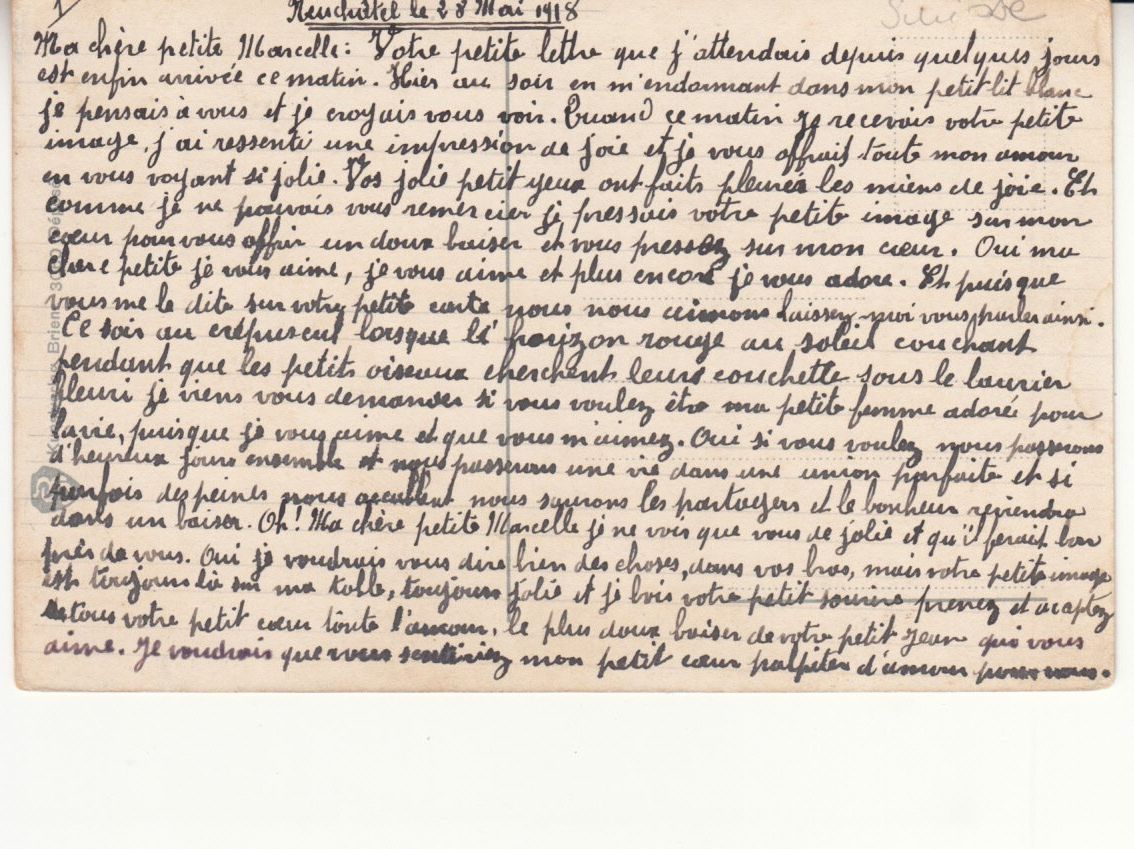 1
Neuchâtel le 28 Mai 1918
Suisse
Ma chère petite Marcelle: Votre petite lettre que j'attendais depuis quelques jours
est enfin arrivée ce matin. Hier au soir en m'endormant dans mon petit lit blanc
je pensais à vous et je croyais vous voir. Quand ce matin je recevais votre petite
image, j'ai ressenti une impression de joie et je vous offrais toute mon amour
en vous voyant si jolie. Vos jolie petit yeux ont faits pleurés les miens de joie. Et
comme je ne pouvais vous remercier je pressais votre petite image sur mon
cœur pour vous offrir un doux baiser et vous pressez sur mon cœur. Oui ma
chère petite je vous aime, je vous aime et plus encore je vous adore. Et puisque
vous me le dite sur votre petite carte nous nous aimons laissez-moi vous parler ainsi.
Ce soir au crépuscul lorsque l'horizon rouge au soleil couchant
pendant que les petits oiseaux cherchent leurs couchette sous le laurier
fleuri je viens vous demander si vous voulez être ma petite femme adoré pour
la vie, puisque je vous aime et que vous m'aimez. Oui si vous voulez nous passerons
d'heureux jours ensemble et nous passerons une vie dans une union parfaite et si
parfois des peines nous accablent nous saurons les partagers et le bonheur reviendra
dans un baiser. Oh! Ma chère petite Marcelle je ne vois que vous de jolie et qu'il ferait bon
près de vous. Oui je voudrais vous dire bien des choses, dans vos bras, mais votre petite image
est toujours là sur ma table, toujours jolie et je bois votre petit sourire prenez et acceptez
de tous votre petit cœur toute l'amour, le plus doux baiser de votre petit Jean qui vous
aime. Je voudrais que vous sentiriez mon petit cœur palpiter d'amour pour vous.
Brienz 3